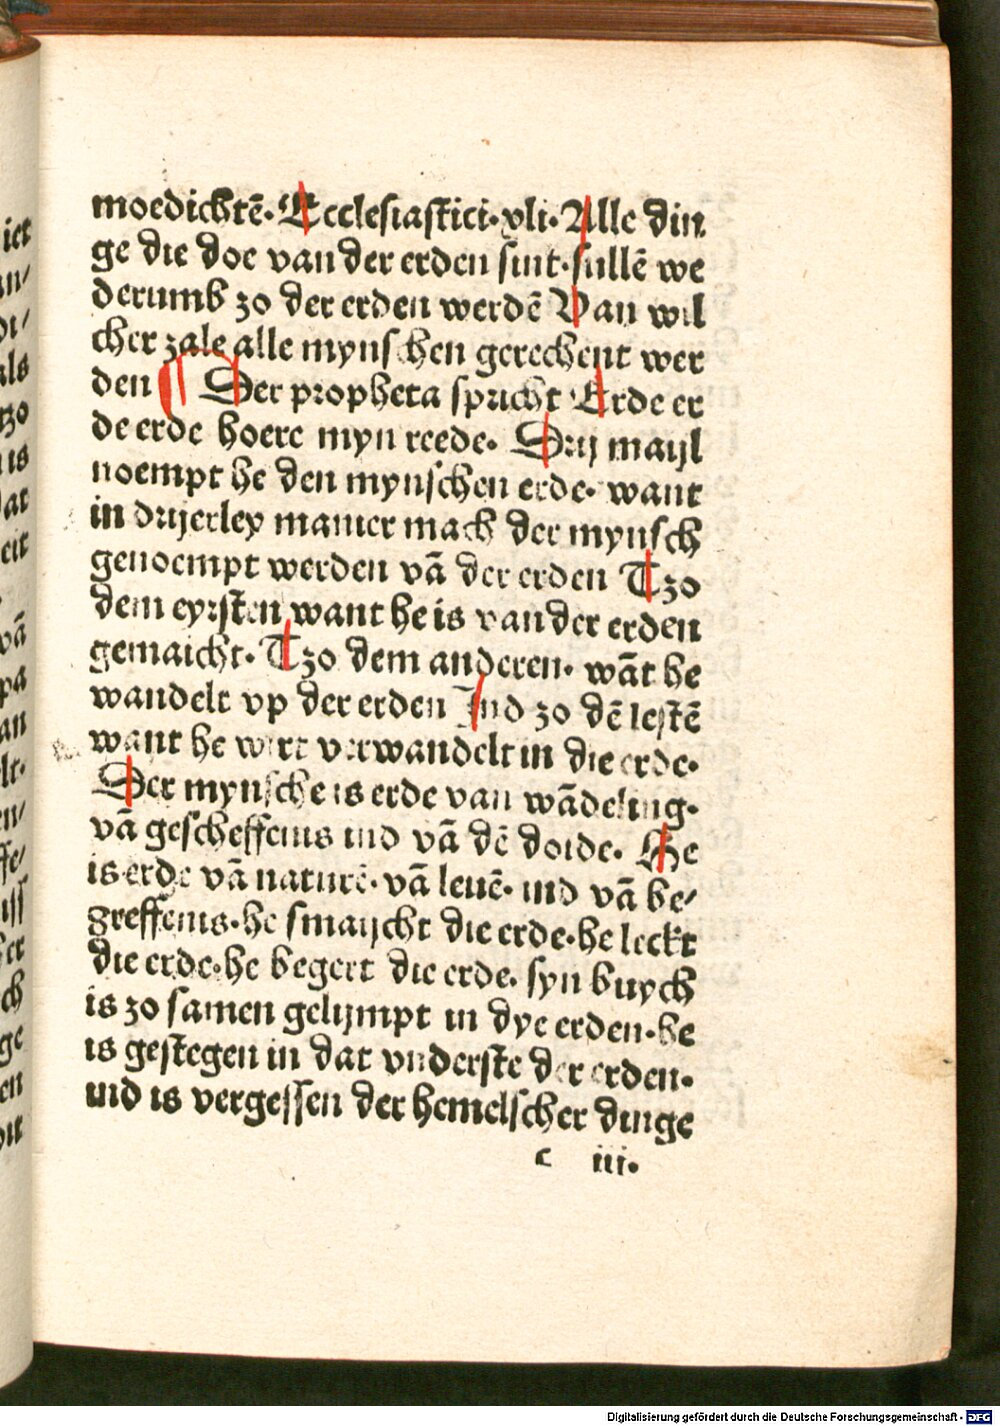 moedichtē. Ecclesiastici. xli. Alle din
ge die doe van der erden sint. sullē we
derumb zo der erden werdē Van wil
cher zale alle mynschen gerechent wer
den ¶ Der propheta spricht Erde er
de erde hoere myn reede. Drij maijl
noempt he den mynschen erde. want
in drijerley manier mach der mynsch
genoempt werden vā der erden Tzo
dem eyrsten want he is van der erden
gemaicht. Tzo dem anderen. wāt he
wandelt vp der erden Ind zo dē lestē
want he wirt verwandelt in die erde.
Der mynsche is erde van wādeling.
vā gescheffenis ind vā dē doide. He
is erde vā naturē. vā leuē. ind vā be/
greffenis. he smaijcht die erde. he leckt
die erde. he begert die erde. syn buych
is zo samen gelijmpt in dye erden. he
is gestegen in dat vnderste der erden.
ind is vergessen der hemelscher dinge
c iii.
Digitalisierung gefördert durch die Deutsche Forschungsgemeinschaft - DFG